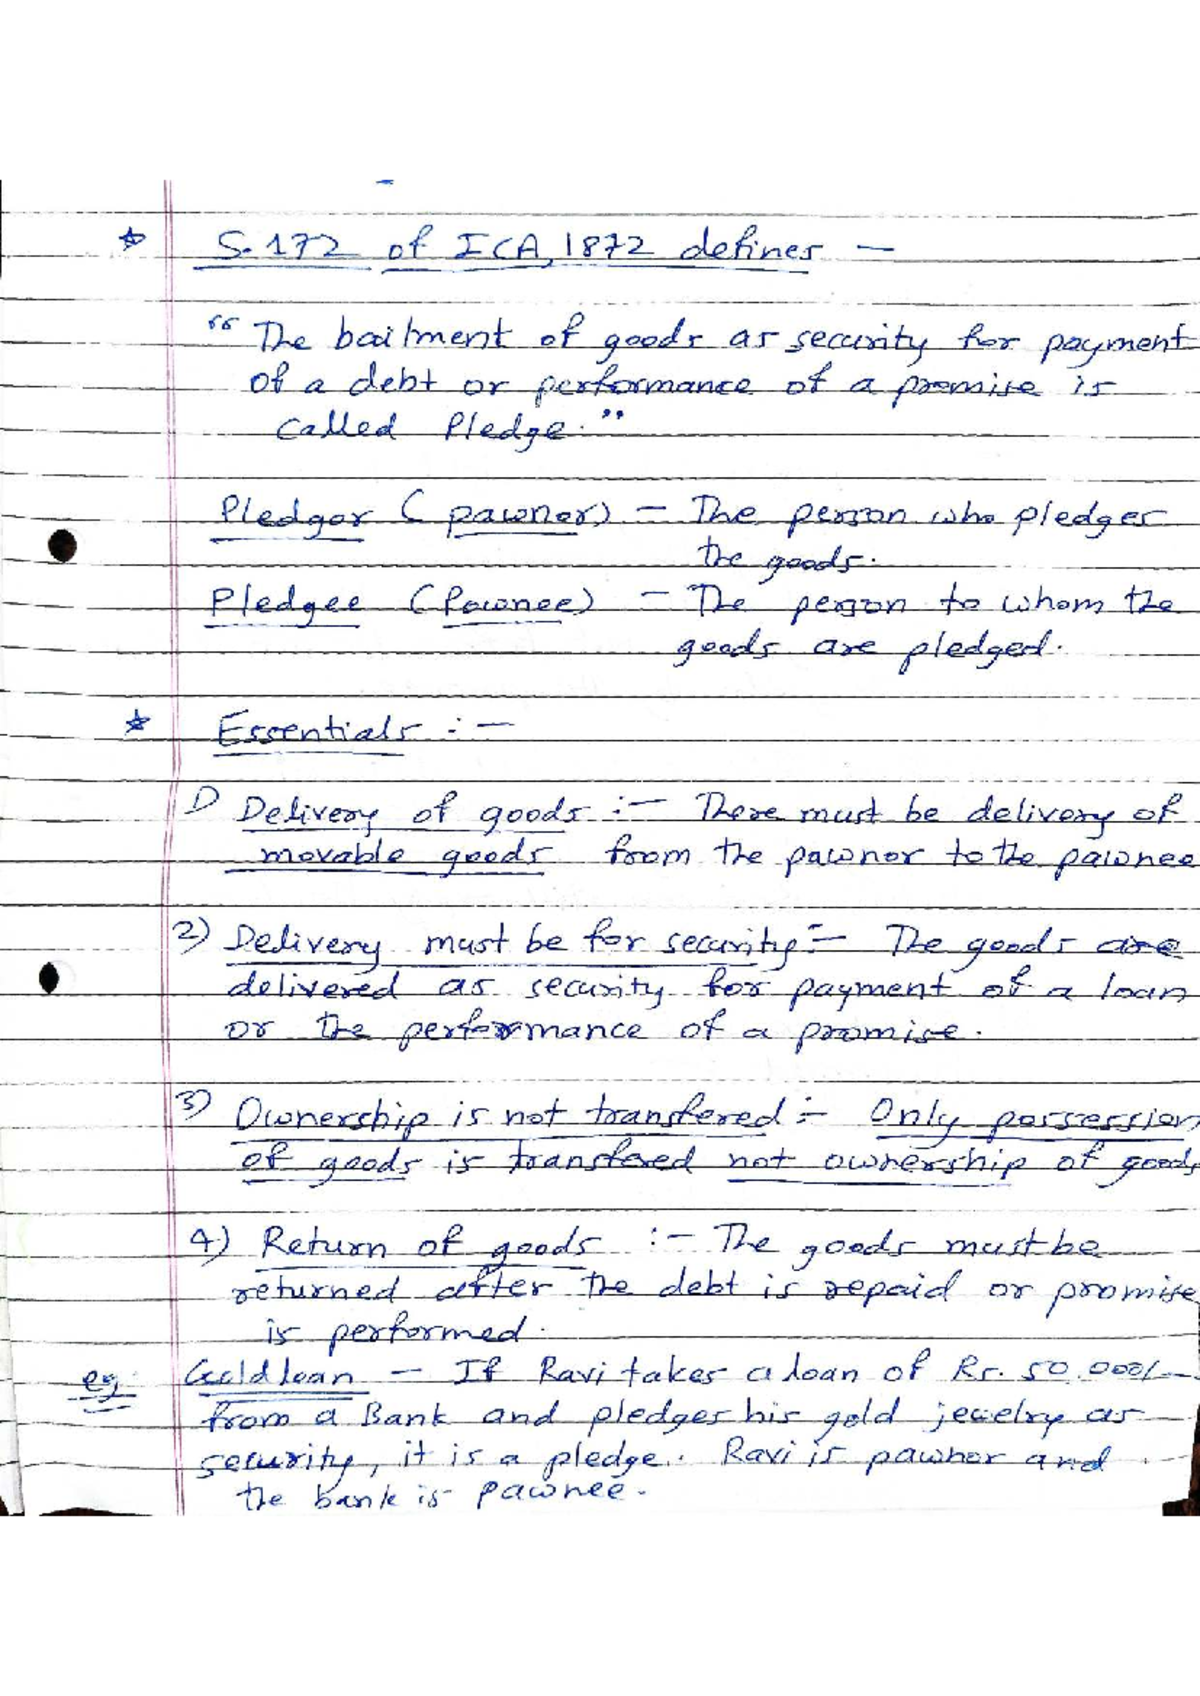 ☆ S. 172 of ICA, 1872 defines —
"The bailment of goods as security for payment
of a debt or performance of a promise is
called Pledge."
Pledgor (pawnor) — The person who pledges
the goods.
Pledgee (Pawnee) — The person to whom the
goods are pledged.
☆ Essentials :—
1) Delivery of goods :— There must be delivery of
movable goods from the pawnor to the pawnee
2) Delivery must be for security :— The goods are
delivered as security for payment of a loan
or the performance of a promise.
3) Ownership is not transfered :— Only possession
of goods is transfered not ownership of goods
4) Return of goods :— The goods must be
returned after the debt is repaid or promise
is performed.
eg: Gold loan — If Ravi takes a loan of Rs. 50,000/-
from a Bank and pledges his gold jewelry as
security, it is a pledge. Ravi is pawnor and
the bank is pawnee.